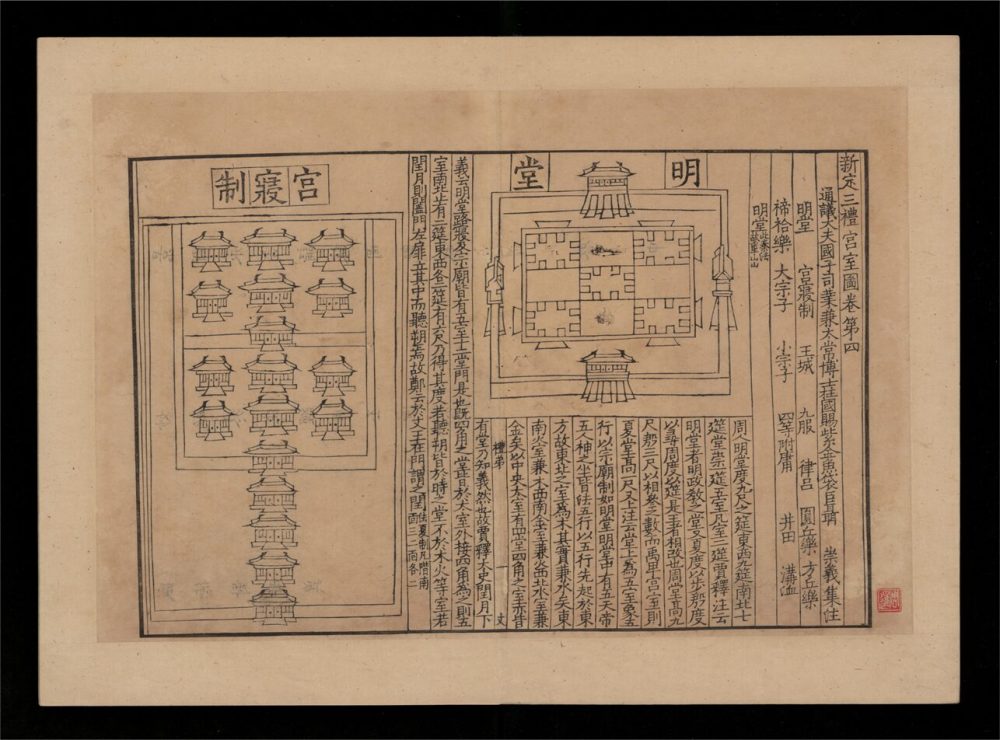 新定三禮宮室圖卷第四
通議大夫國子司業兼太常博士柱國賜紫金魚袋臣聶崇義集注
明堂 宮寢制 王城 九服 律呂 圜丘樂 方丘樂
禘祫樂 大宗子 小宗子 四等附庸 井田 溝洫
明堂
明堂
周人明堂度九尺之筵東西九筵南北七
筵堂崇一筵五室凡室二筵賈釋注云
明堂者明政教之堂又夏度以步殷度
以尋周度以筵是王者相改也周堂高九
尺殷三尺以相參之數而禹卑宮室則
夏堂高一尺又上注云堂上為五室象五
行以宗廟制如明堂明堂中有五天帝
五人神之坐皆法五行以五行先起於東
方故東北之室為木其實兼水矣東
南火室兼木西南金室兼火西北水室兼
金矣以中央太室有四堂四角之室亦皆
有堂乃知義然也故賈釋太史閏月下
禮弟 一 丈
義云明堂路寢及宗廟皆有五室十二堂門是也既四角之堂皆於太室外接四角為之則五
室南北止有二筵東西各二筵有六尺乃得其度若聽朔皆於時之堂不於木火等室若
閏月則闔門左扉立其中而聽朔焉故鄭云於文王在門謂之閏
宮寢制